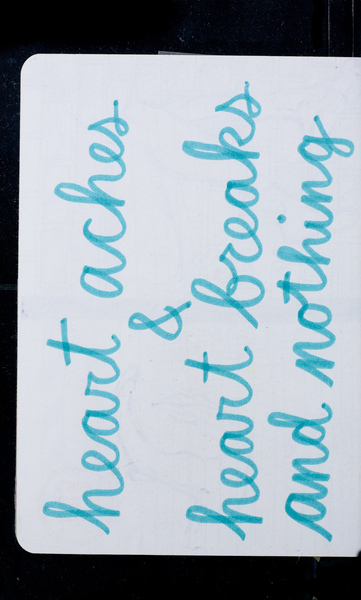 heart aches
&
heart breaks
and nothing